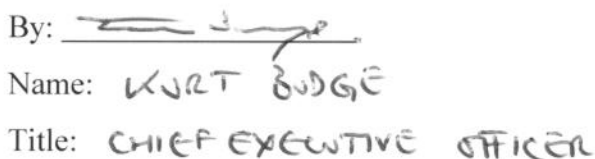 By:
Name: KURT BUDGE
Title: CHIEF EXECUTIVE OFFICER